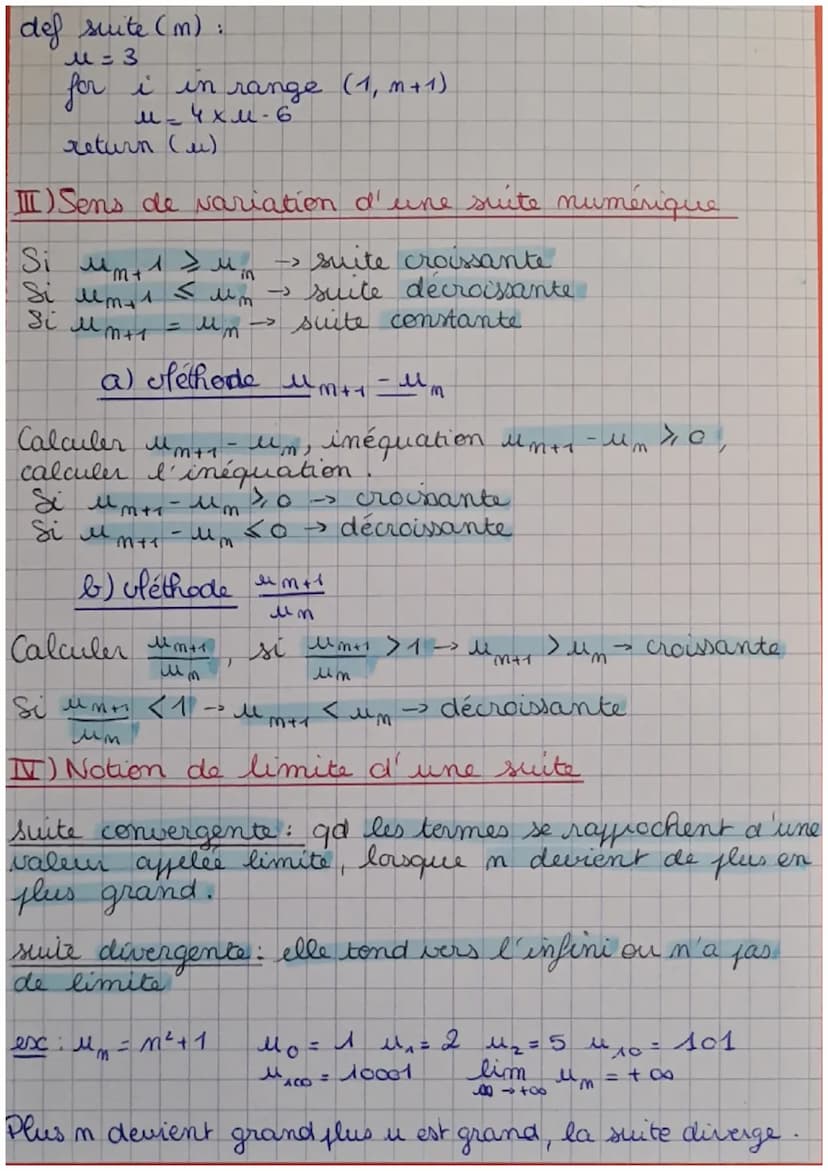 def suite (n) :
u = 3
for i in range (1, n+1)
u = 4 × u - 6
return (u)
III) Sens de variation d'une suite numérique
Si uₙ₊1 ≥ uₙ → suite croissante
Si uₙ₊1 ≤ uₙ → suite décroissante
Si uₙ₊₁ = uₙ → suite constante
a) Méthode uₙ₊₁ - uₙ
Calculer uₙ₊₁ - uₙ, inéquation uₙ₊₁ - uₙ ≥ 0,
calculer l'inéquation.
Si uₙ₊₁ - uₙ ≥ 0 → croissante
Si uₙ₊₁ - uₙ ≤ 0 → décroissante
b) Méthode uₙ₊₁/uₙ
Calculer uₙ₊₁/uₙ, si uₙ₊₁/uₙ > 1 → uₙ₊₁ > uₙ → croissante
Si uₙ₊₁/uₙ < 1 → uₙ₊₁ < uₙ → décroissante
IV) Notion de limite d'une suite
suite convergente : qd les termes se rapprochent d'une
valeur appelée limite, lorsque n devient de plus en
plus grand.
suite divergente : elle tend vers l'infini ou n'a pas
de limite
ex : uₙ = n² + 1 u₀ = 1 u₁ = 2 u₂ = 5 u₁₀ = 101
u₁₀₀ = 10001 lim ∞→+∞ uₙ = +∞
Plus n devient grand plus u est grand, la suite diverge.